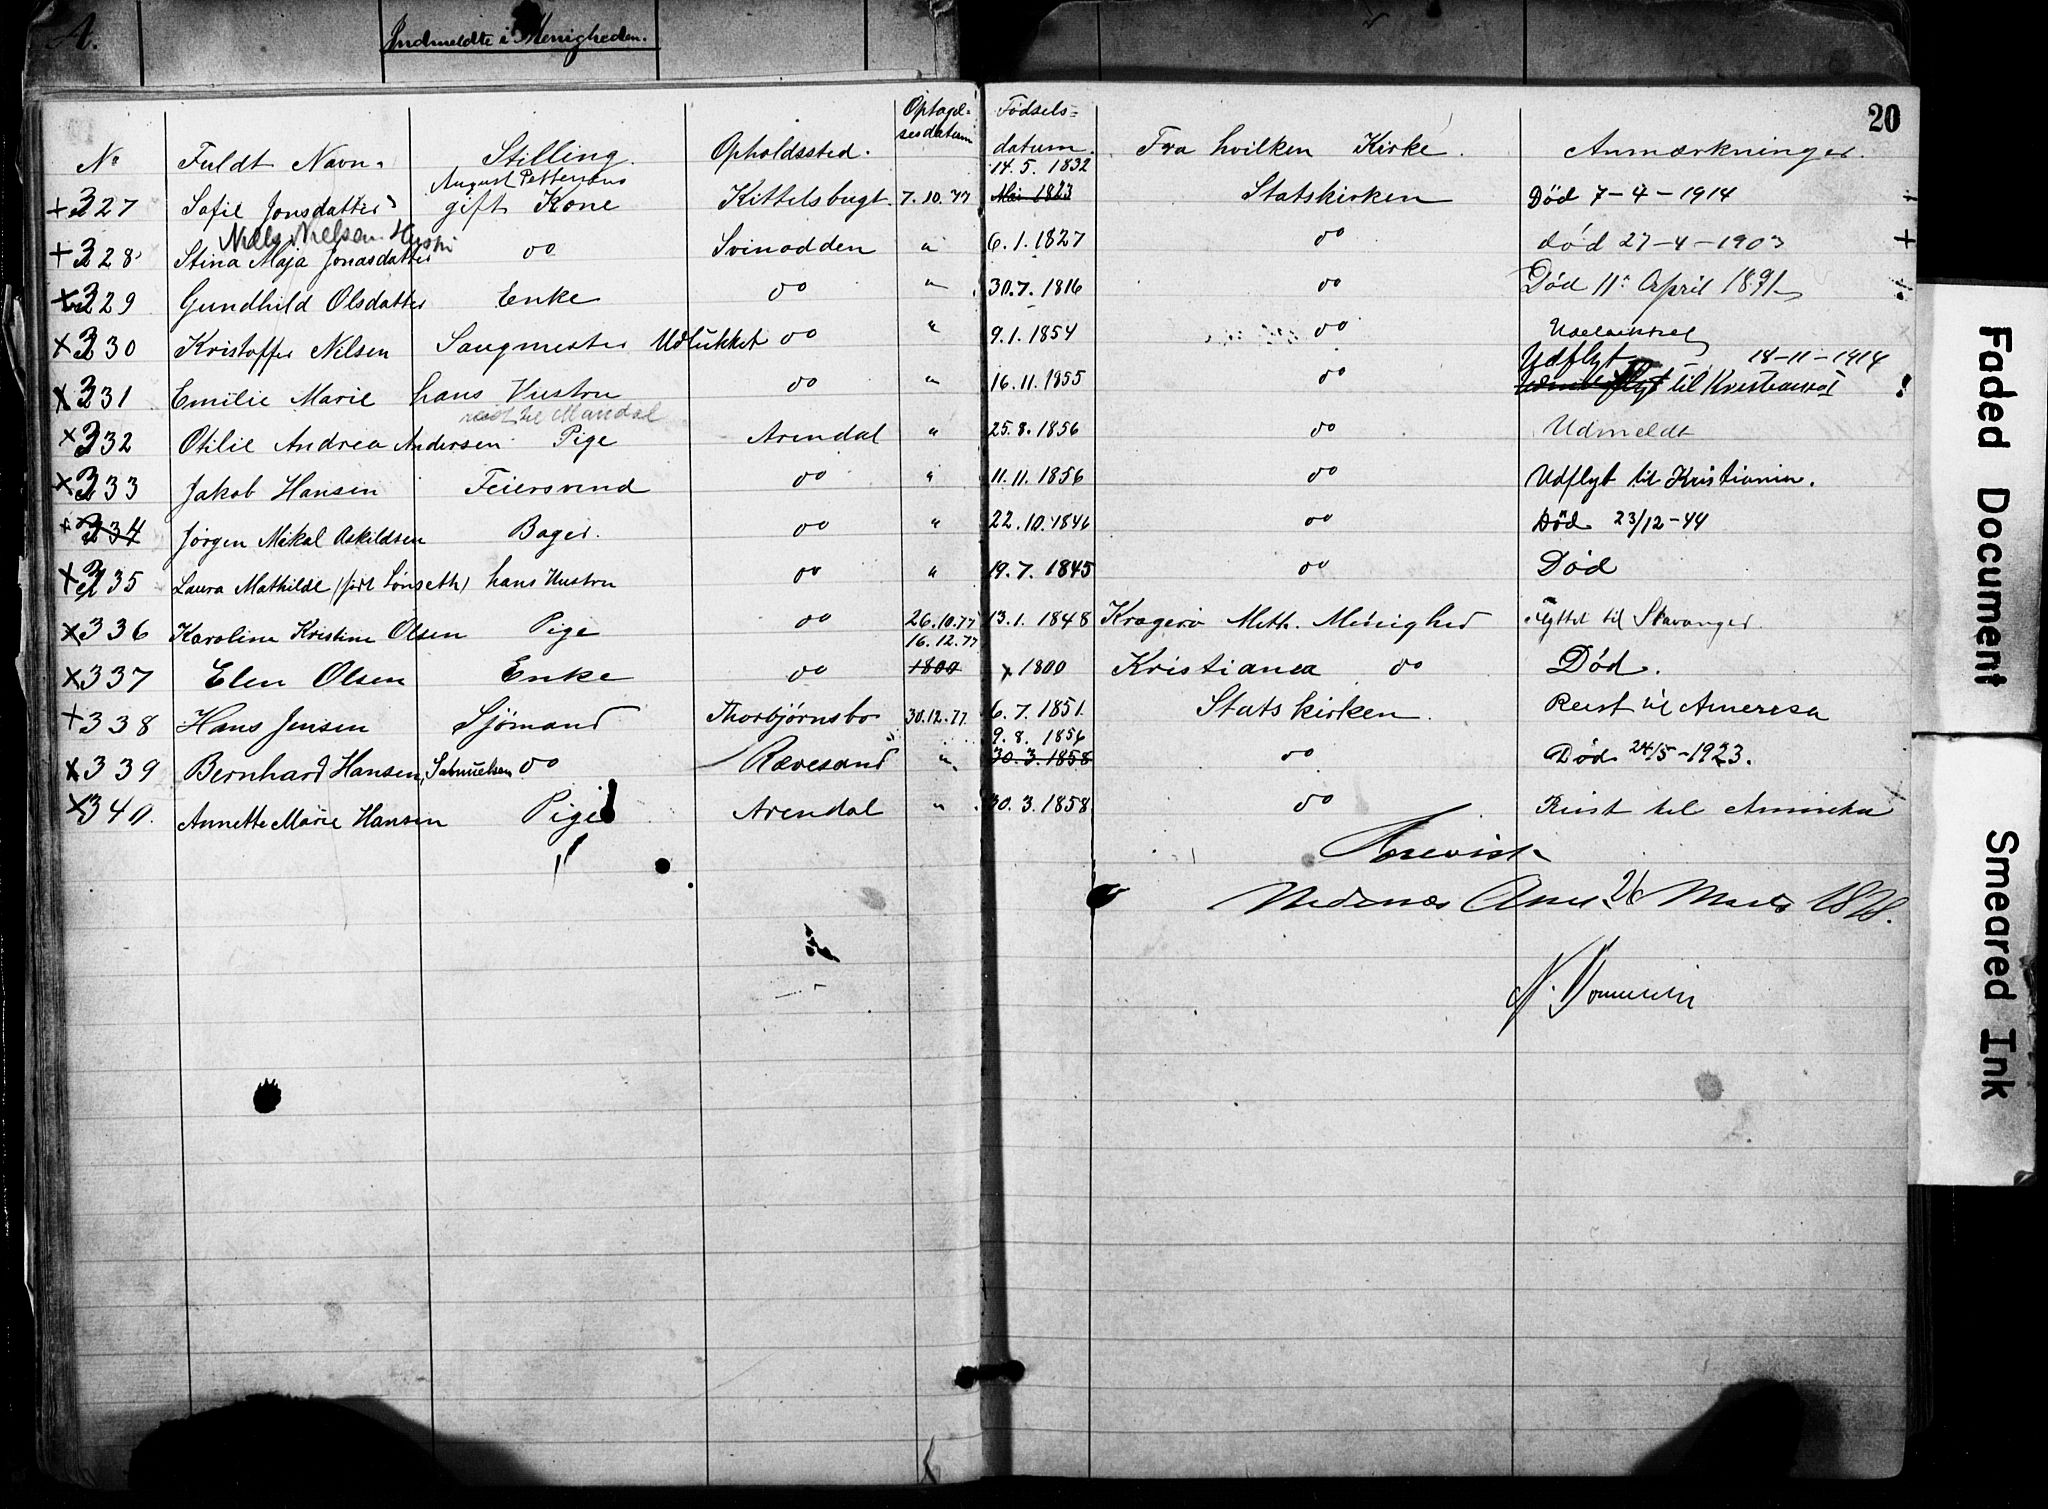 A. Indmeldte i Menigheden.
20
No Fuldt Navn. Stilling. Opholdssted. Optagelsesdatum Fødselsdatum. Fra hvilken Kirke. Anmærkninger.
August Pettersens 14.5.1832
+ 327 Sofie Jonsdatter gift Kone Kittelsbugt. 7.10.77 Mai 1823 Statskirken Død 7-4-1914
Niels Nielsen Hustru
+ 328 Stina Maja Jonasdatter do Svinodden " 6.1.1827 do død 27-4-1903 +
x 329 Gundhild Olsdatter Enke do " 30.7.1816 do Død 11te April 1891
x 330 Kristoffer Nilsen Saugmester Udlukket do " 9.1.1854 do
Udflyt 14-11-1914
x 331 Emilie Marie hans Hustru do " 16.11.1855 do til Kristiansd !
reist til Mandal
x 332 Otilie Andrea Andersen Pige Arendal " 25.8.1856 do Udmeldt
x 333 Jakob Hansen Feiersvend do " 11.11.1856 do Udflyt til Kristiania.
x 334 Jørgen Mikal Askildsen Bager. do " 22.10.1846 do Død 23/12-44
x 335 Laura Mathilde (født Lønseth) hans Hustru do " 19.7.1845 do Død
x 336 Karoline Kristine Olsen Pige do 26.10.77 13.1.1848 Kragerø Meth. Menighed flyttet til Stavanger
16.12.77
x 337 Elen Olsen Enke do 1800 x 1800 Kristiania do Død.
+ 338 Hans Jensen Sjømand Thorbjørnsbo 30.12.77 6.7.1851. Statskirken. Reist til Amerika
9.8.1856
x 339 Bernhard Hansen, Samuelsen do Rævesand " 30.3.1858 do Død 24/5-1923.
x 340. Annette Marie Hansen Pige Arendal " 30.3.1858 do Reist til Amerika
Forevist
Nedenæs Amt 26 Marts 1878.
Faded Document
Smeared Ink